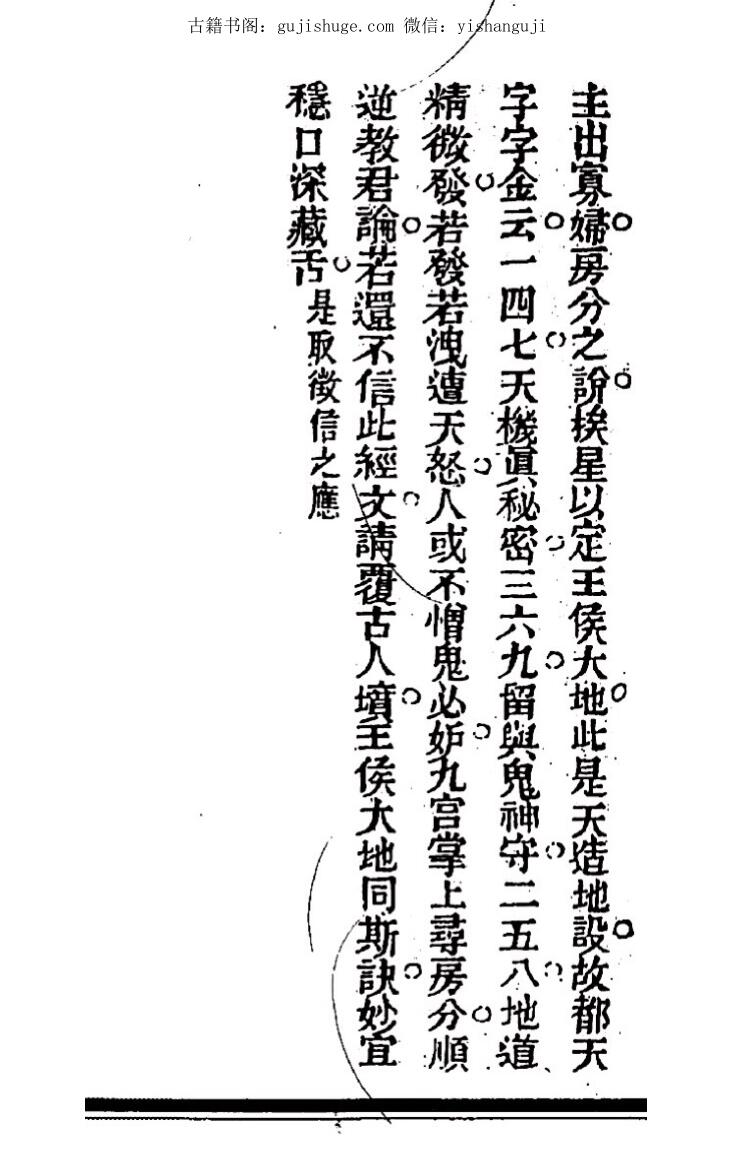 古籍书阁：gujishuge.com 微信：yishanguji
主出寡婦房分之說挨星以定王侯大地此是天造地設故都天
字字金云一四七天機眞秘密三六九留與鬼神守二五八地道
精微發若發若洩遭天怒人或不憎鬼必妒九宮掌上尋房分順
逆教君論若還不信此經文請覆古人墳王侯大地同斯訣妙宜
穩口深藏舌是取徵信之應